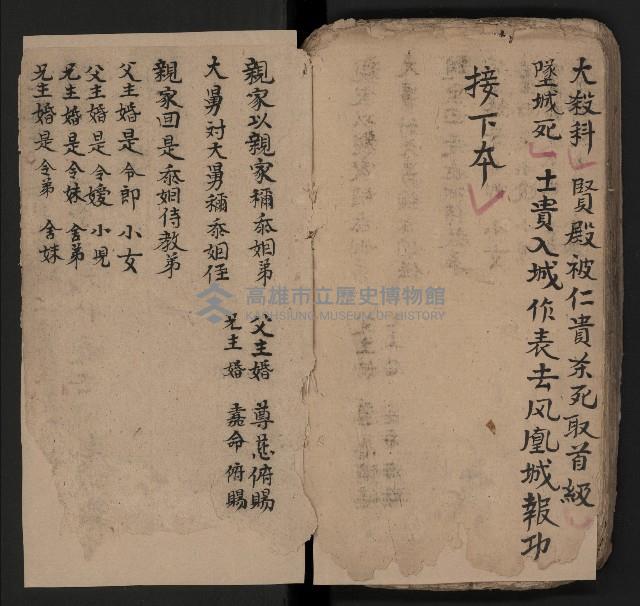 大殺科 賢殿被仁貴茶死取首級
墜城死 士貴入城作表去风凰城報功
接下夲
親家以親家稱忝姻弟 父主婚 尊慈俯賜
大舅対大舅稱忝姻侄 兄主婚 嘉命俯賜
親家回是忝姻侍教弟
父主婚是令郎 小女
父主婚是令嫒 小児
兄主婚是令妹 舍弟
兄主婚是令弟 舍妹
高雄市立歷史博物館
KAOHSIUNG MUSEUM OF HISTORY